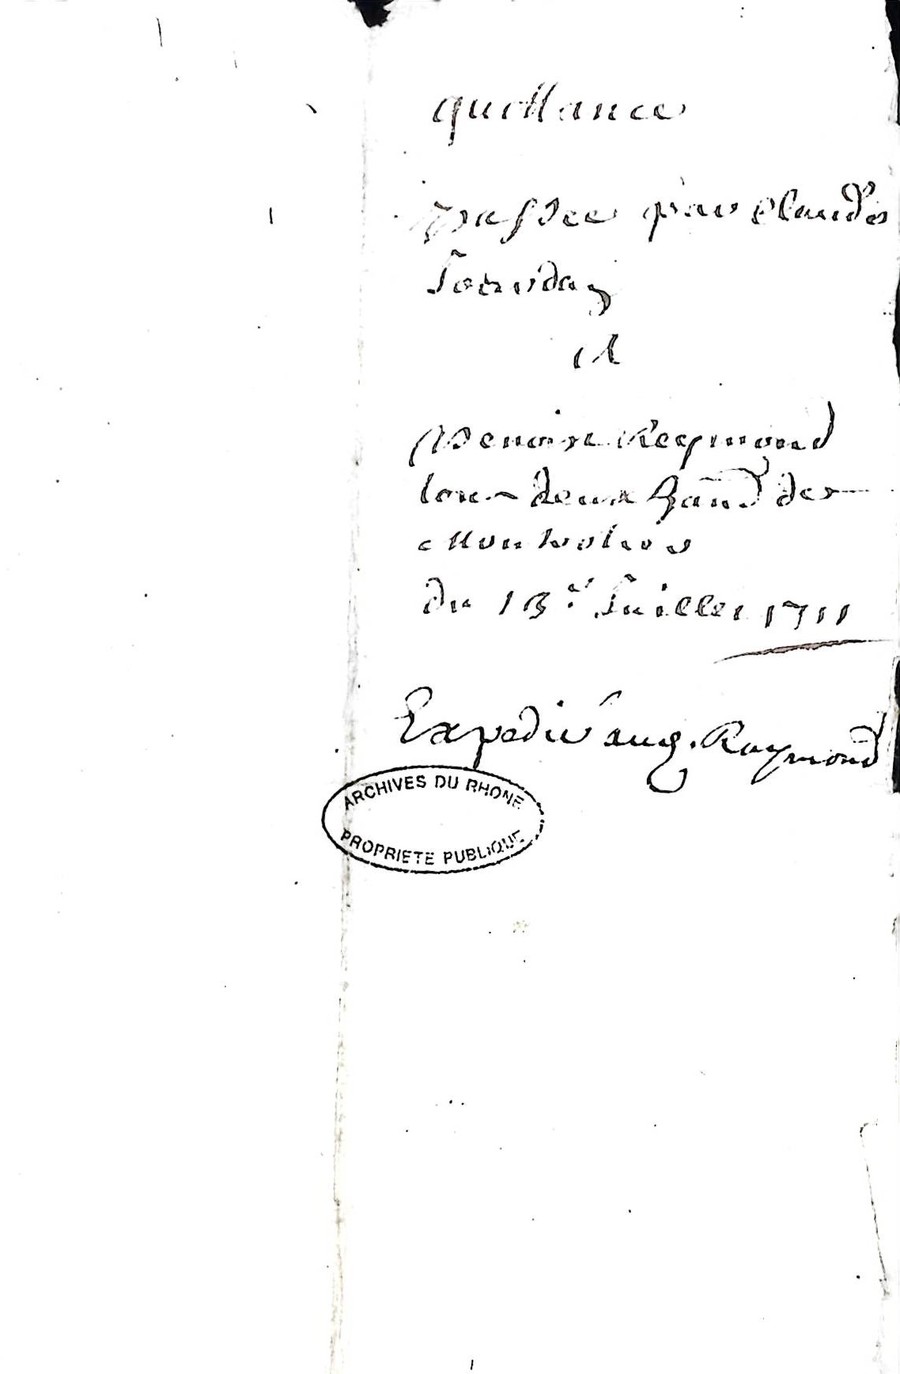 quittance
passee par Claude
Jourday
et
Benoist Reymond
tous deux hand de
du 13e Juillet 1711
Expedié aud. Raymond
ARCHIVES DU RHONE
PROPRIETE PUBLIQUE